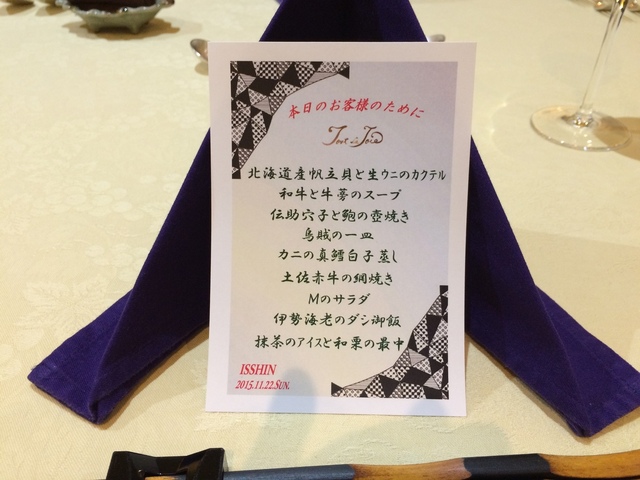 本日のお客様のために
北海道産帆立貝と生ウニのカクテル
和牛と牛蒡のスープ
伝助穴子と鮑の壺焼き
烏賊の一皿
カニの真鱈白子蒸し
土佐赤牛の網焼き
Mのサラダ
伊勢海老のダシ御飯
抹茶のアイスと和栗の最中
ISSHIN
2015.11.22.SUN.